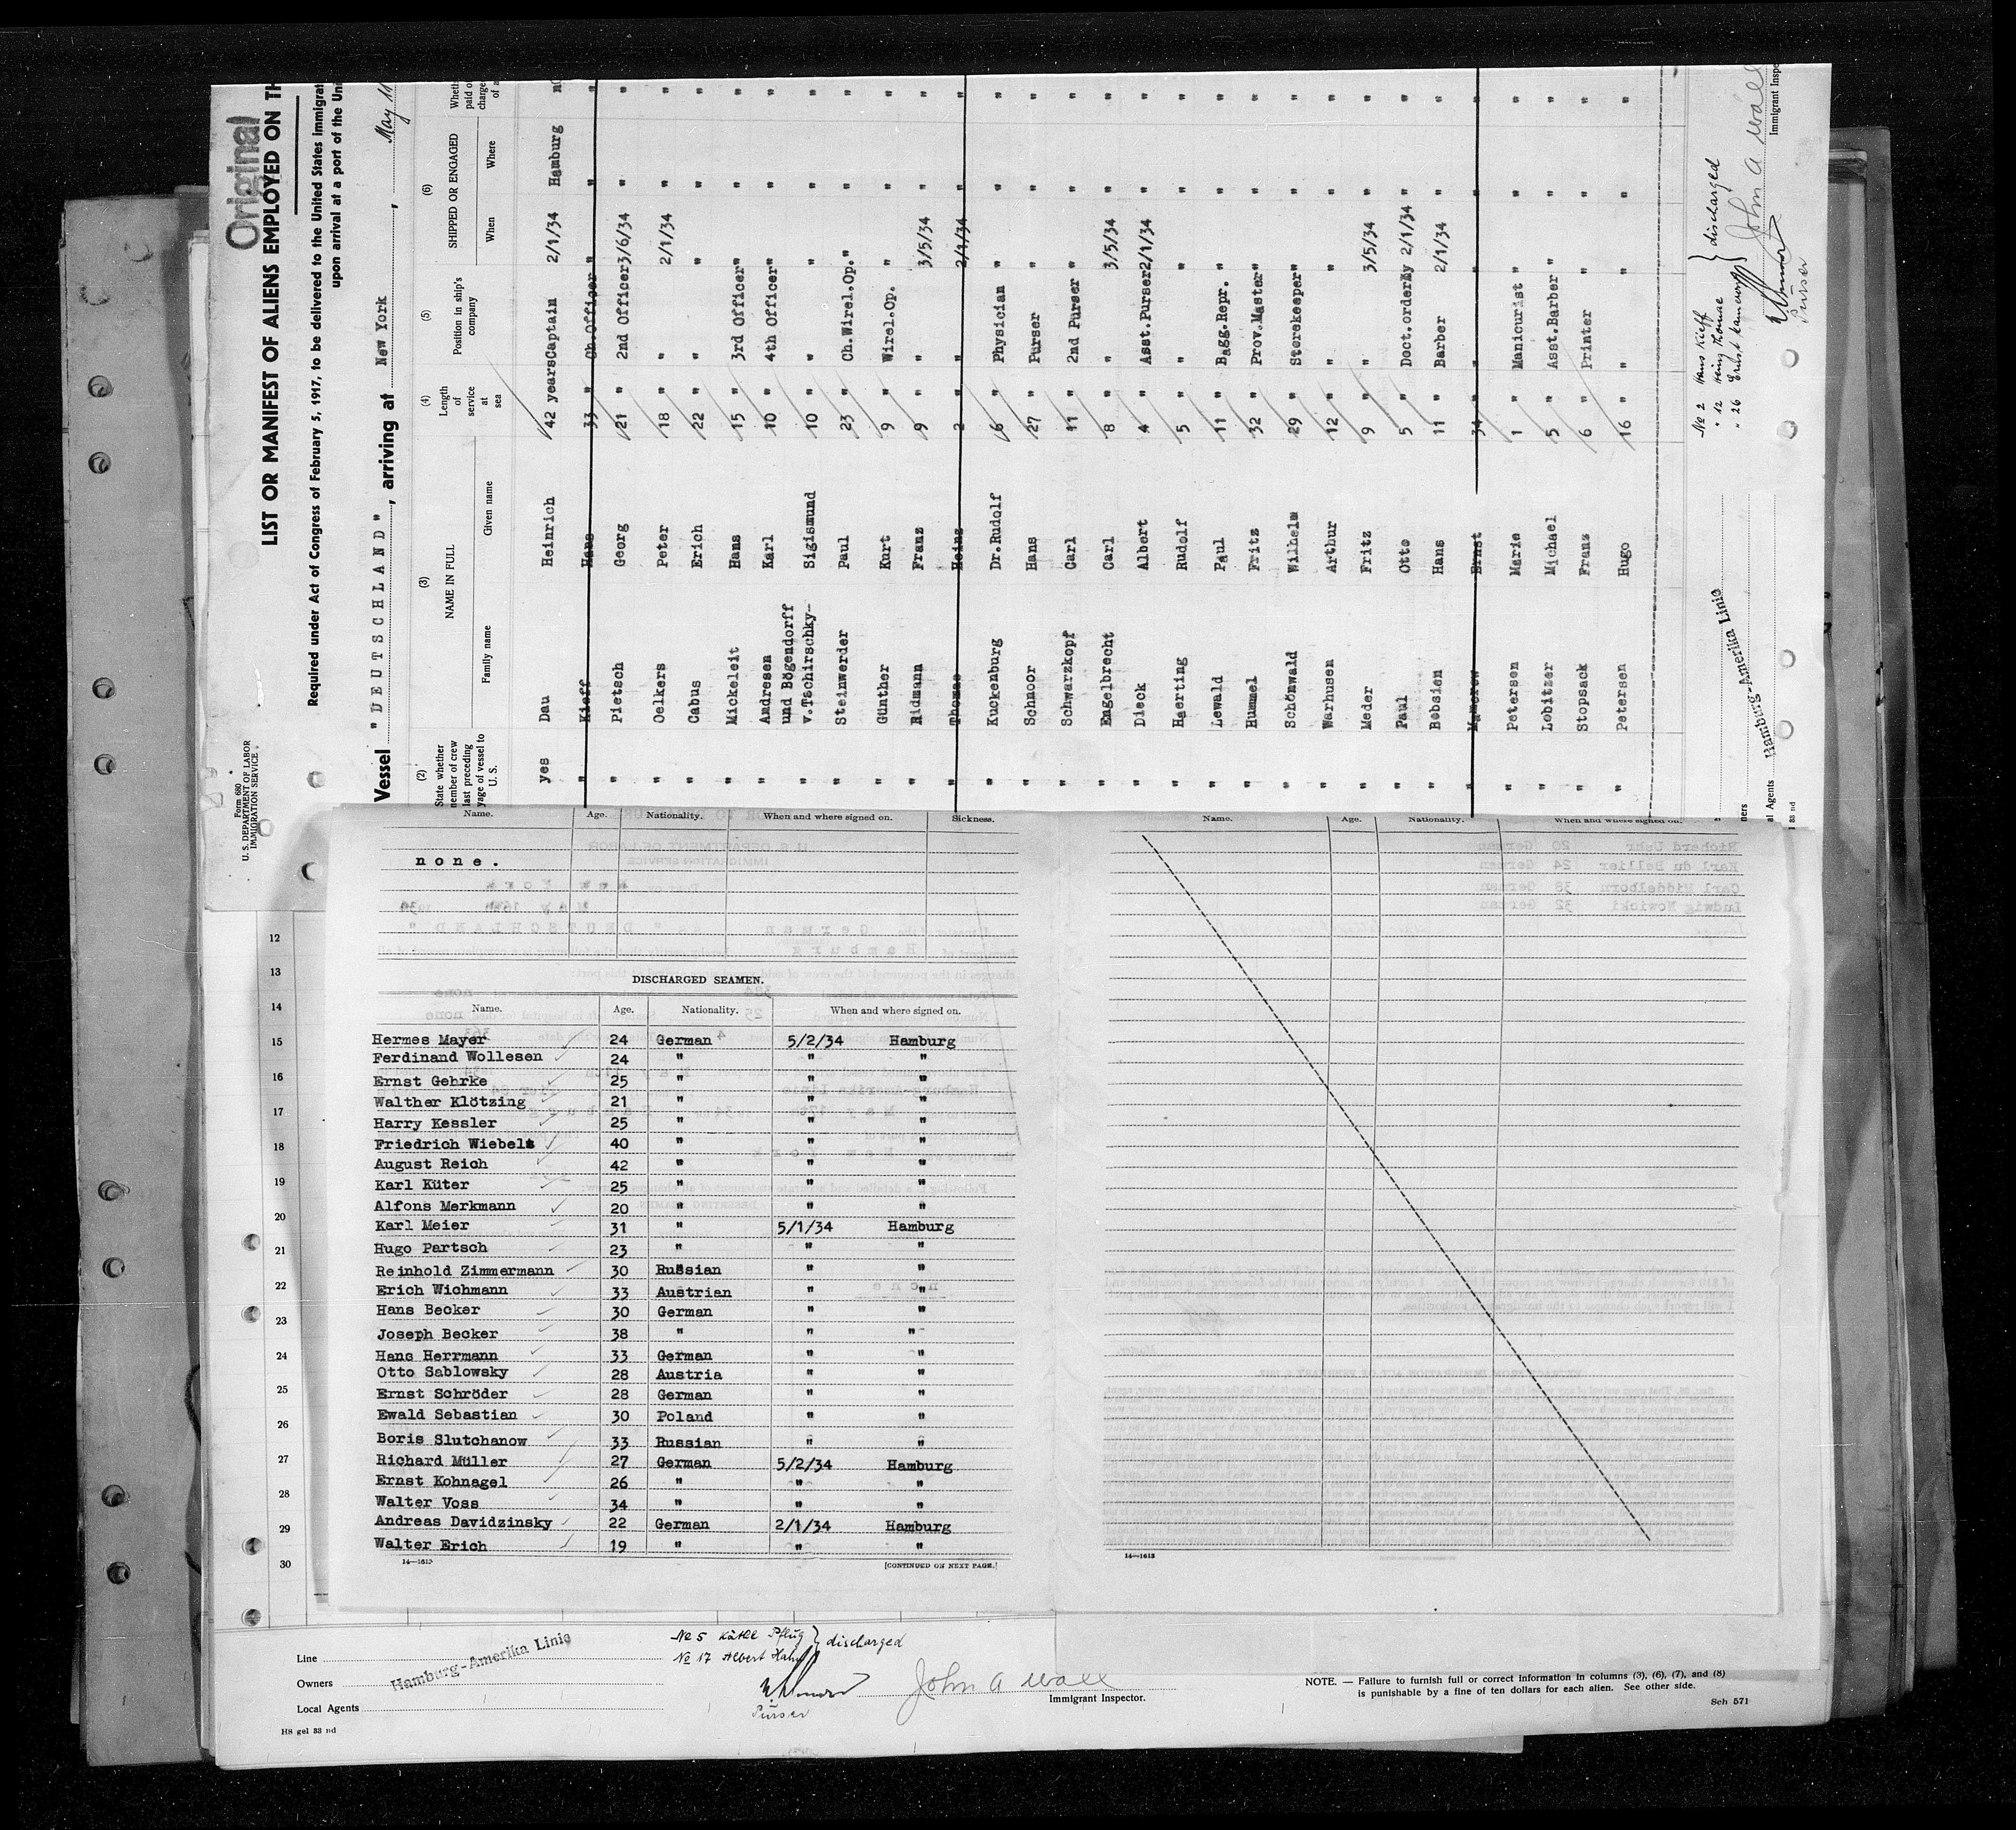 Original
LIST OR MANIFEST OF ALIENS EMPLOYED ON TH
Required under Act of Congress of February 5, 1917, to be delivered to the United States immigrat
upon arrival at a port of the Uni
Form 680
U. S. DEPARTMENT OF LABOR
IMMIGRATION SERVICE
Vessel "DEUTSCHLAND", arriving at New York, May 11
(2) (3) (4) (5) (6)
State whether member of crew last preceding yage of vessel to U. S.
NAME IN FULL
Family name Given name
Length of service at sea
Position in ship's company
SHIPPED OR ENGAGED
When Where
yes Dau Heinrich 42 years Captain 2/1/34 Hamburg
" Kieff Hans 33 " Ch.Officer " "
" Pietsch Georg 21 " 2nd Officer 3/6/34 "
" Oelkers Peter 18 " " 2/1/34 "
" Cabus Erich 22 " " " "
" Mickeleit Hans 15 " 3rd Officer " "
" Andresen Karl 10 " 4th Officer " "
und Bögendorff
" v.Tschirschky- Sigismund 10 " " " "
" Steinwerder Paul 23 " Ch.Wirel.Op. " "
" Günther Kurt 9 " Wirel.Op. " "
" Ridmann Franz 9 " " 3/5/34 "
" Thomae Heinz 2 " " 2/1/34 "
" Kuckenburg Dr.Rudolf 6 " Physician " "
" Schnoor Hans 27 " Purser " "
" Schwarzkopf Carl 11 " 2nd Purser " "
" Engelbrecht Carl 8 " " 3/5/34 "
" Dieck Albert 4 " Asst.Purser 2/1/34 "
" Haerting Rudolf 5 " " " "
" Lewald Paul 11 " Bagg.Repr. " "
" Hummel Fritz 32 " Prov.Master " "
" Schönwald Wilhelm 29 " Storekeeper " "
" Warhusen Arthur 12 " " " "
" Meder Fritz 9 " " 3/5/34 "
" Paul Otto 5 " Doct.orderly 2/1/34 "
" Bebsien Hans 11 " Barber 2/1/34 "
" Ernst 34 " " " "
" Petersen Marie 1 " Manicurist " "
" Lobitzer Michael 5 " Asst.Barber " "
" Stopsack Franz 6 " Printer " "
" Petersen Hugo 16 " " " "
Hamburg-Amerika Linie
№ 2 Hans Kieff
" 12 Heinz Thomae
" 26 Ernst
discharged
Purser
John A Wall
Immigrant Inspe
Name. Age. Nationality. When and where signed on. Sickness.
none.
DISCHARGED SEAMEN.
Name. Age. Nationality. When and where signed on.
Hermes Mayer 24 German 5/2/34 Hamburg
Ferdinand Wollesen 24 " " "
Ernst Gehrke 25 " " "
Walther Klötzing 21 " " "
Harry Kessler 25 " " "
Friedrich Wiebelt 40 " " "
August Reich 42 " " "
Karl Küter 25 " " "
Alfons Merkmann 20 " " "
Karl Meier 31 " 5/1/34 Hamburg
Hugo Partsch 23 " " "
Reinhold Zimmermann 30 Russian " "
Erich Wichmann 33 Austrian " "
Hans Becker 30 German " "
Joseph Becker 38 " " "
Hans Herrmann 33 German " "
Otto Sablowsky 28 Austria " "
Ernst Schröder 28 German " "
Ewald Sebastian 30 Poland " "
Boris Slutchanow 33 Russian " "
Richard Müller 27 German 5/2/34 Hamburg
Ernst Kohnagel 26 " " "
Walter Voss 34 " " "
Andreas Davidzinsky 22 German 2/1/34 Hamburg
Walter Erich 19 " " "
14—1613
[CONTINUED ON NEXT PAGE.]
Name. Age. Nationality. When and where signed on.
14—1613
12
13
14
15
16
17
18
19
20
21
22
23
24
25
26
27
28
29
30
Line
Owners
Local Agents
Hamburg-Amerika Linie
№ 5 Käthe Pflug
№ 17 Albert Hahn
discharged
Purser
John A Wall
Immigrant Inspector.
NOTE. — Failure to furnish full or correct information in columns (3), (6), (7), and (8)
is punishable by a fine of ten dollars for each alien. See other side.
Sch 571
HS gel 33 nd